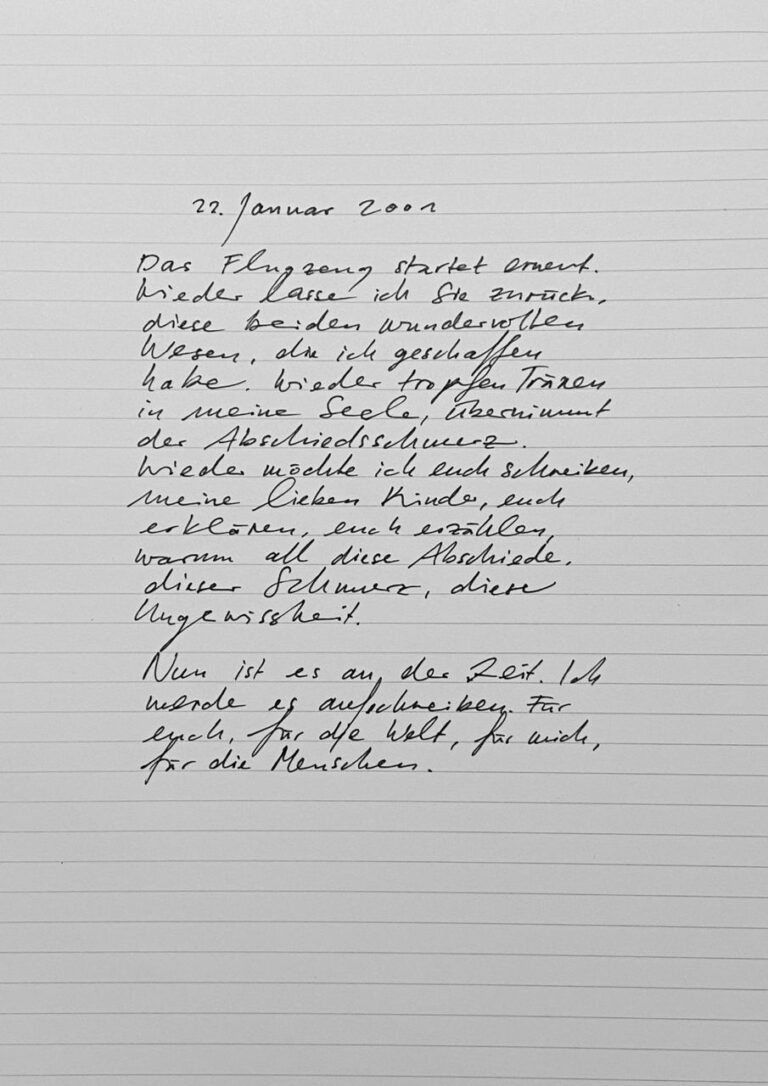 22. Januar 2001
Das Flugzeug startet erneut.
Wieder lasse ich Sie zurück,
diese beiden wundervollen
Wesen, die ich geschaffen
habe. Wieder tropfen Tränen
in meine Seele, übernimmt
der Abschiedsschmerz.
Wieder möchte ich euch schreiben,
meine lieben Kinder, euch
erklären, euch erzählen,
warum all diese Abschiede,
dieser Schmerz, diese
Ungewissheit.
Nun ist es an der Zeit. Ich
werde es aufschreiben. Für
euch, für die Welt, für mich,
für die Menschen.